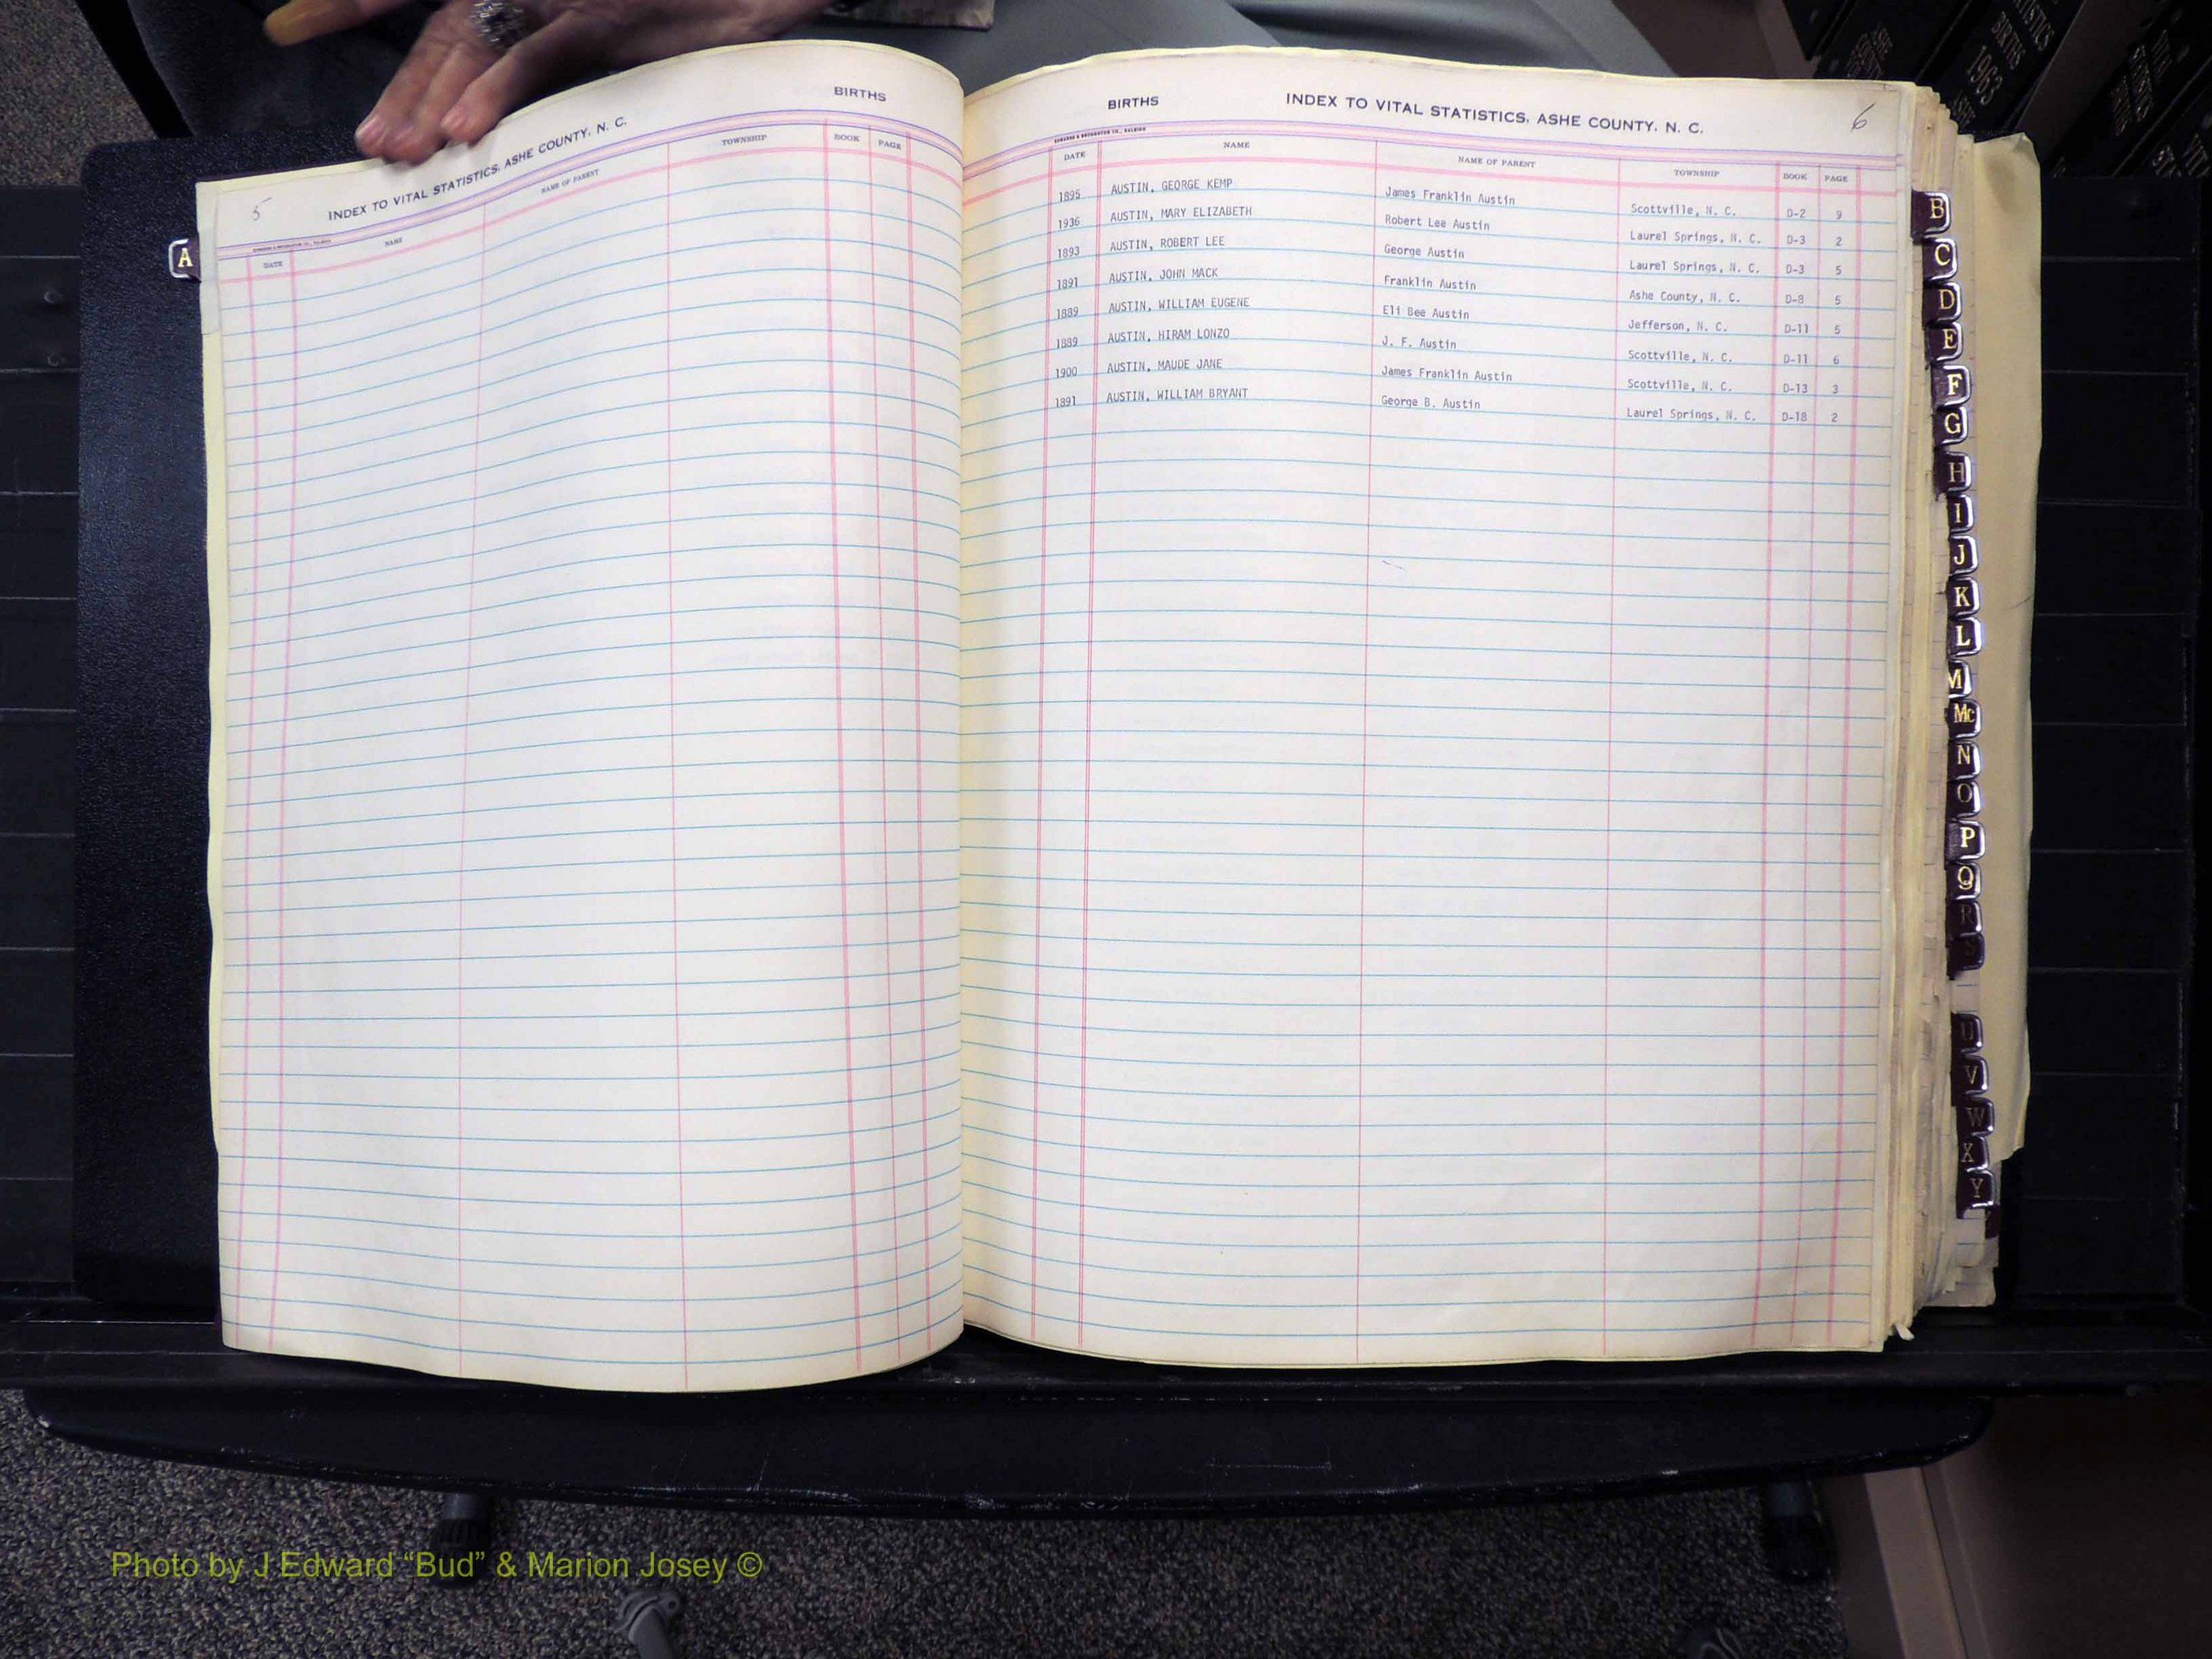 BIRTHS
5
INDEX TO VITAL STATISTICS, ASHE COUNTY, N. C.
DATE NAME NAME OF PARENT TOWNSHIP BOOK PAGE
A
BIRTHS INDEX TO VITAL STATISTICS, ASHE COUNTY, N. C. 6
DATE NAME NAME OF PARENT TOWNSHIP BOOK PAGE
1895 AUSTIN, GEORGE KEMP James Franklin Austin Scottville, N. C. D-2 9
1936 AUSTIN, MARY ELIZABETH Robert Lee Austin Laurel Springs, N. C. D-3 2
1893 AUSTIN, ROBERT LEE George Austin Laurel Springs, N. C. D-3 5
1891 AUSTIN, JOHN MACK Franklin Austin Ashe County, N. C. D-8 5
1889 AUSTIN, WILLIAM EUGENE Eli Bee Austin Jefferson, N. C. D-11 5
1889 AUSTIN, HIRAM LONZO J. F. Austin Scottville, N. C. D-11 6
1900 AUSTIN, MAUDE JANE James Franklin Austin Scottville, N. C. D-13 3
1891 AUSTIN, WILLIAM BRYANT George B. Austin Laurel Springs, N. C. D-18 2
B
C
D
E
F
G
H
I
J
K
L
M
Mc
N
O
P
Q
R
S
U
V
W
X
Y
BIRTHS
1963
Photo by J Edward “Bud” & Marion Josey ©